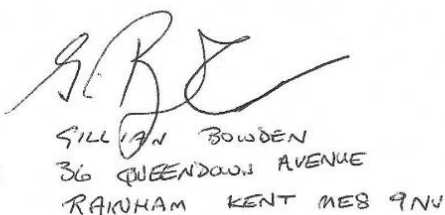 GILLIAN BOWDEN
36 QUEENDOWN AVENUE
RAINHAM KENT ME8 9NY